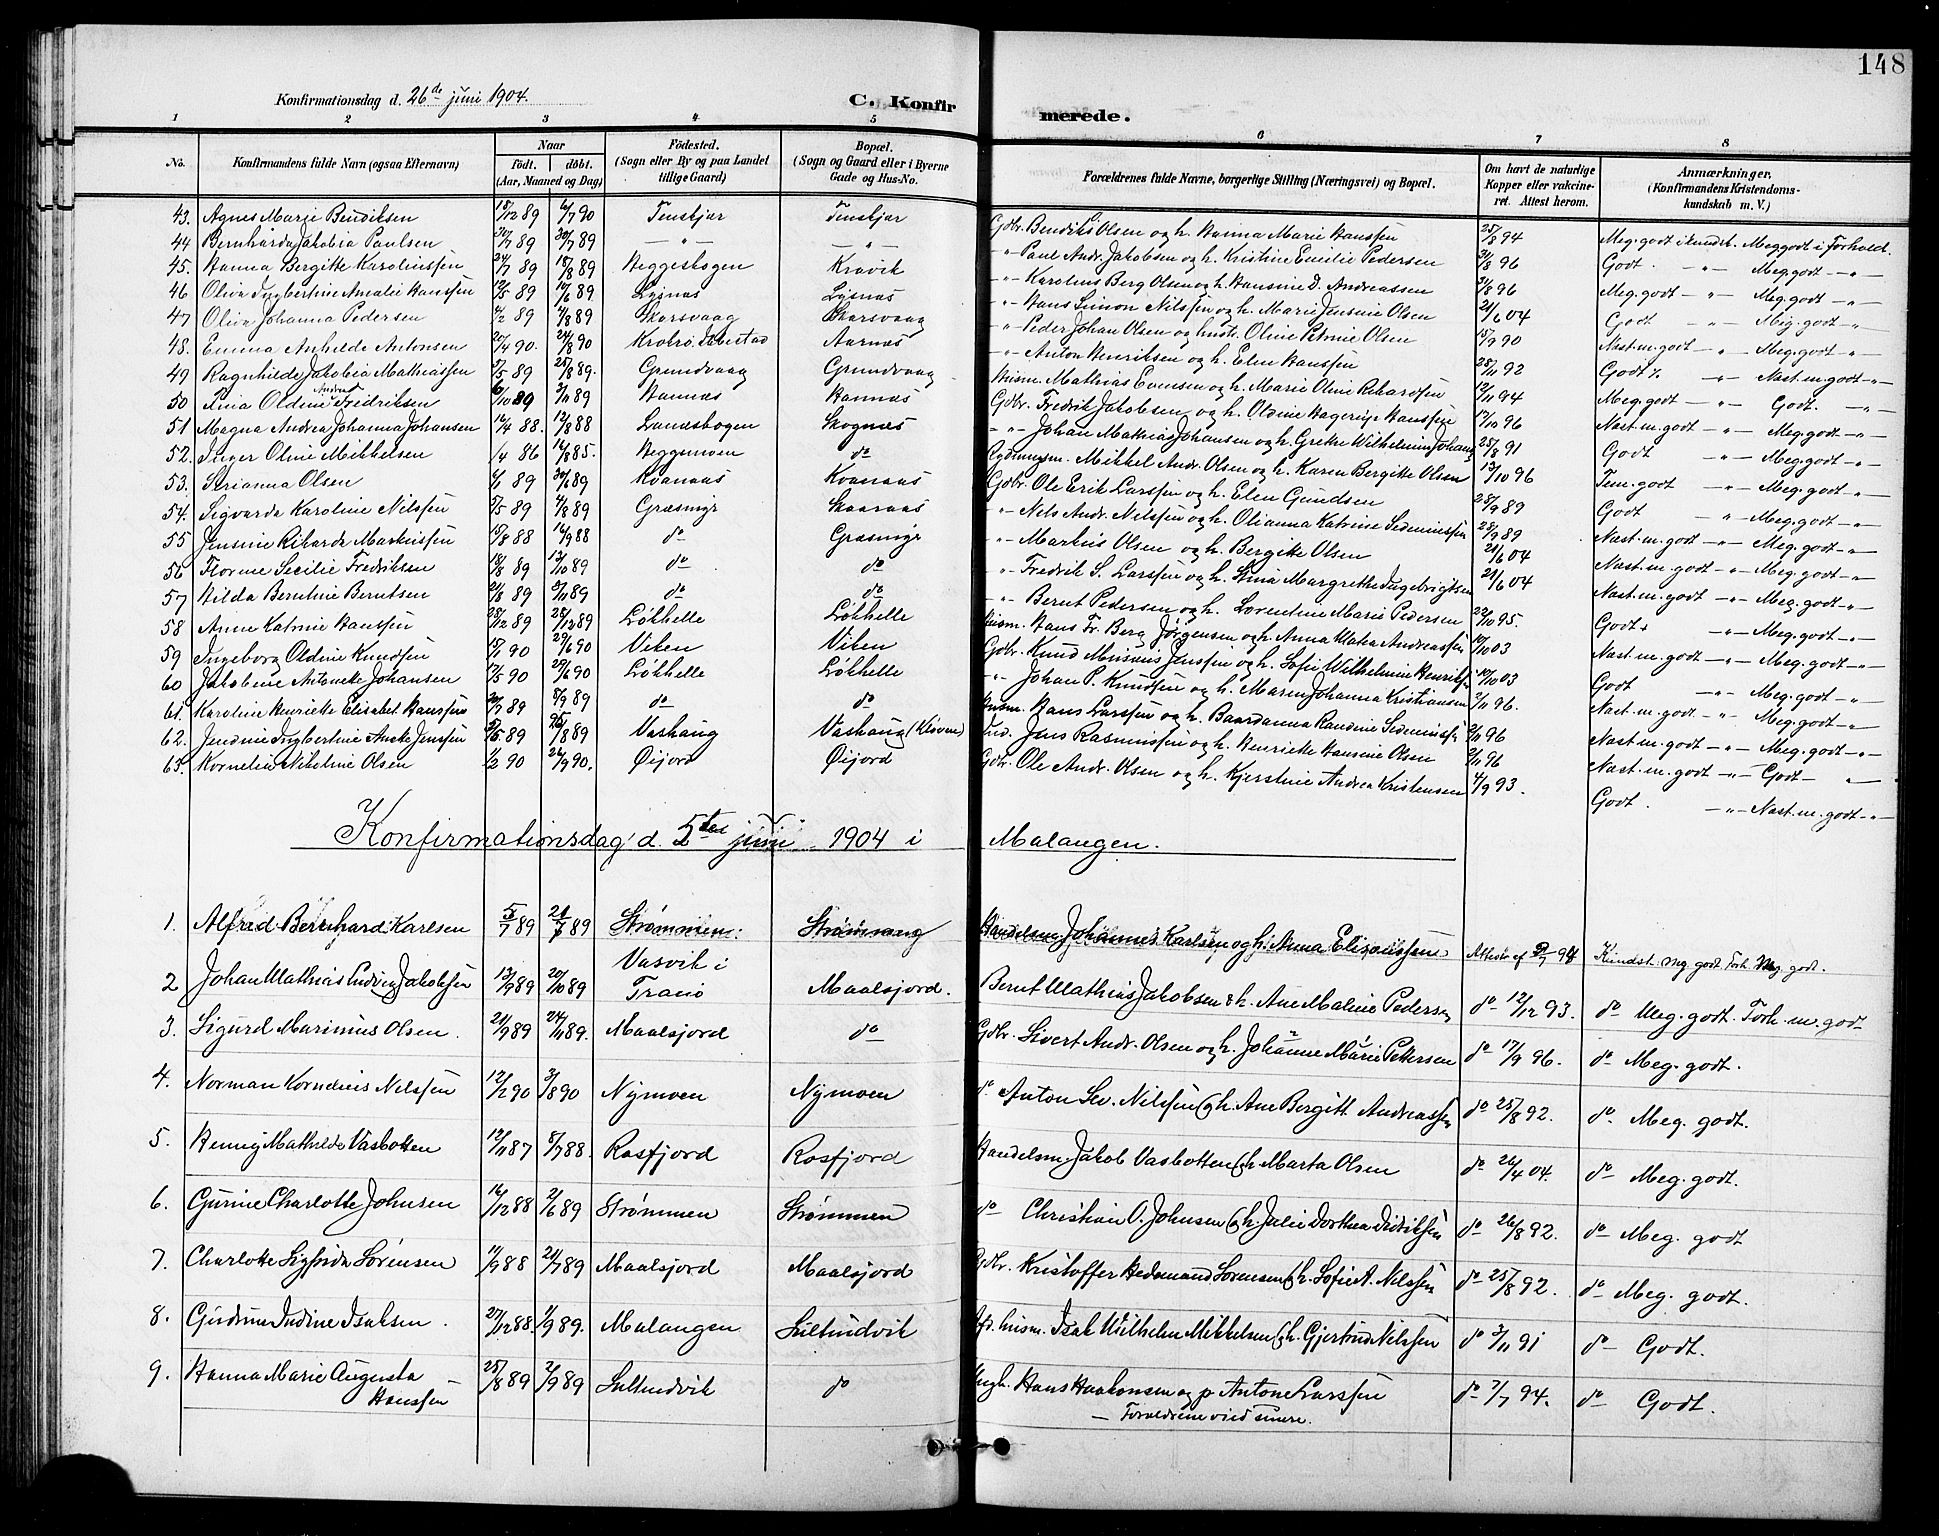 148
Konfirmationsdag d. 26de juni 1904.
C. Konfirmerede.
1 2 3 4 5 6 7 8
No.
Konfirmandens fulde Navn (ogsaa Efternavn)
Naar
født. døbt.
(Aar, Maaned og Dag)
Fødested.
(Sogn eller By og paa Landet
tillige Gaard)
Bopæl.
(Sogn og Gaard eller i Byerne
Gade og Hus-No.
Forældrenes fulde Navne, borgerlige Stilling (Næringsvei) og Bopæl.
Om havt de naturlige
Kopper eller vakcine-
ret. Attest herom.
Anmærkninger.
(Konfirmandens Kristendoms-
kundskab m. V.)
43. Agnes Marie Bendiksen 15/12 89 6/7 90 Tenskjær Tenskjær Gdbr. Bendiks Olsen og h. Hanna Marie Hanssen 25/8 94 Meg. godt i kundsk. Meg godt i Forhold.
44 Bernharda Jakobia Paulsen 30/7 89 — " — — " — - " - Paul Andr. Jakobsen og h. Kristine Emilie Pedersen 31/8 96 Godt. — " — Meg. godt — " —
45. Hanna Bergitte Karolinssen 24/7 89 18/8 89 Heggeskogen Kravik - " - Karolius Berg Olsen og h. Hansine D. Andreassen 31/8 96 Meg. godt — " — Meg. godt — " —
46 Oliva Ingbertine Amalie Hanssen 12/5 89 16/6 89 Lysnæs Lysnæs - " - Hans Simon Nilssen og h. Marie Jensine Olsen 21/6 04 Godt — " — Meg. godt — " —
47 Oliva Johanna Pedersen 4/2 89 4/8 89 Skarsvaag Skarsvaag - " - Peder Johan Olsen og hustr. Oline Petrine Olsen 15/9 90 Næst. m. godt — " — Meg. godt — " —
48. Emma Anhilde Antonsen 20/4 90. 24/8 90 Aarnæs - " - Anton Henriksen og h. Elen Hanssen 28/11 92 Godt — " — Næst. m. godt — " —
49 Ragnhilde Jakobia Mathiassen 5/5 89 25/8 89. Grundvaag Grundvaag Husm. Mathias Evensen og h. Marie Oline Rikardsen 12/11 94 Meg. godt — " — Godt. — " —
50 Lina Oldine Andrea Fredriksen 6/10 89 3/11 89 Hannæs Hannæs Gdbr. Fredrik Jakobsen og h. Oldine Hagerup Hanssen 12/10 96 Næst. m. godt — " — Meg. godt — " —
51 Magna Andrea Johanna Johansen 16/4 88. 12/8 88 Lanesskogen Skognæs - " - Johan Mathias Johansen og h. Grethe Wilhelmine Johans. 25/8 91 Godt — " — Meg. godt — " —
52. Inger Oline Mikkelsen /4 86 16/8 85. Heggemoen do Rydningsm. Mikkel Andr. Olsen og h. Karen Bergitte Olsen 13/10 96 Tem. godt — " — Meg. godt — " —
53. Serianna Olsen 4/1 89 30/6 89 Kvanaas Kvanaas Gdbr. Ole Erik Larssen og h. Elen Gundsen 28/9 89 Godt — " — Meg. godt — " —
54. Sigvarda Karoline Nilssen 5/5 89 4/8 89 Græsmyr Skaaraas - " - Nels Andr. Nilssen og h. Olianna Katrine Sedeniussen 28/9 89 Næst. m. godt — " — Meg. godt — " —
55 Jensine Rikarda Markussen 15/8 88 16/9 88 do Græsmyr - " - Markus Olsen og h. Bergitte Olsen 21/6 04 Næst. m. godt — " — Meg. godt — " —
56 Florine Secilie Fredriksen 18/8 89 13/10 89 do do - " - Fredrik S. Larssen og h. Stina Margrethe Ingebrigtsen 21/6 04 Næst. m. godt — " — Meg. godt — " —
57 Hilda Berntine Berntsen 21/8 89 3/11 89 do do - " - Bernt Pedersen og h. Lorentine Marie Pedersen 22/10 95. Godt — " — Meg. godt — " —
58 Anne Katrine Hanssen 28/12 89 28/12 89 Løkhelle Løkhelle Husm. Hans Fr. Berg Jørgensen og h. Anna Maka Andreassen 10/10 03 Næst. m. godt — " — Meg. godt — " —
59 Ingeborg Oldine Knudsen 15/1 90 29/6 90 Viken Viken Gdbr. Knud Meisius Jenssen og h. Sofie Wilhelmine Henriks. 10/10 03 Godt — " — Meg. godt — " —
60 Jakobine Antonette Johansen 17/5 90 29/6 90 Løkhelle Løkhelle " Johan P. Knudsen og h. Maren Johanna Kristiansen 2/11 96. Næst. m. godt — " — Meg. godt — " —
61. Karoline Henriette Elisabet Hanssen 20/7 89 8/9 89 do do Husm. Hans Larssen og h. Baardanna Randine Sedeniuss. 2/11 96 Næst. m. godt — " — Meg. godt — " —
62. Jendine Ingbertine Anette Jenssen 9/5 89 25/8 89 Vashaug Vashaug (Kløven) Ind. Jens Rasmussen og h. Henriette Hansine Olsen 2/11 96 Næst. m. godt — " — Godt — " —
63. Kornelia Nikoline Olsen 1/2 90 26/9 90. Øijord Øijord Gdbr. Ole Andr. Olsen og h. Kjerstine Andrea Kristensen 4/9 93. Godt. — " — Næst. m. godt — " —
Konfirmationsdag d. 5te juni 1904 i Malangen.
1. Alfred Bernhard Karlsen 5/7 89 21/7 89 Strømmen. Strømmen Handelsm. Johannes Karlsen og h. Anna Eliseussen Attest af 2/7 94 Kundsk. meg godt Forh. Meg. godt.
2 Johan Mathias Ludvig Jakobsen 13/9 89 20/10 89 Vasvik i Tranø Maalsjord. Bernt Mathias Jakobsen & h. Ane Maline Pedersen do 12/12 93. do Meg. godt. Forh. m. godt
3. Sigurd Marinius Olsen. 21/9 89 24/11 89. Maalsjord do Gdbr. Sivert Andr. Olsen og h. Johanne Marie Pettersen do 17/9 96. do Meg. godt.
4. Norman Kornelius Nilssen 12/2 90 3/8 90 Nymoen Nymoen do Anton Sev. Nilssen & h. Ane Bergitt Andreassen do 25/8 92. do. Meg. godt.
5. Henny Mathilde Vasbotten 12/11 87 8/7 88. Rosfjord Rosfjord Handelsm. Jakob Vasbotten & h. Marta Olsen do 26/4 04. do Meg. godt.
6. Gurine Charlotte Johnsen 16/12 88 2/6 89 Strømmen Strømmen do Christian O. Johnsen & h. Julie Dorthea Didriksen do 26/8 92. do Meg. godt
7. Charlotte Sigfrida Sørensen 11/9 88 21/7 89 Maalsjord Maalsjord Gdbr. Kristoffer Hedemand Sørensen & h. Sofie A. Nilssen do 25/8 92. do Meg. godt.
8. Gudrun Indine Isaksen. 27/12 88. 1/9 89. Malangen Sultindvik Afd. husm. Isak Wilhelm Mikkelsen & h. Gjertrud Nilssen do 3/11 91 do Godt.
9. Hanna Marie Augusta Hanssen 25/8 89 2/9 89 Sultindvik do Ungk. Hans Haakonsen og p. Antone Larssen do 7/7 94. do Godt.
— Forældrene viede senere.